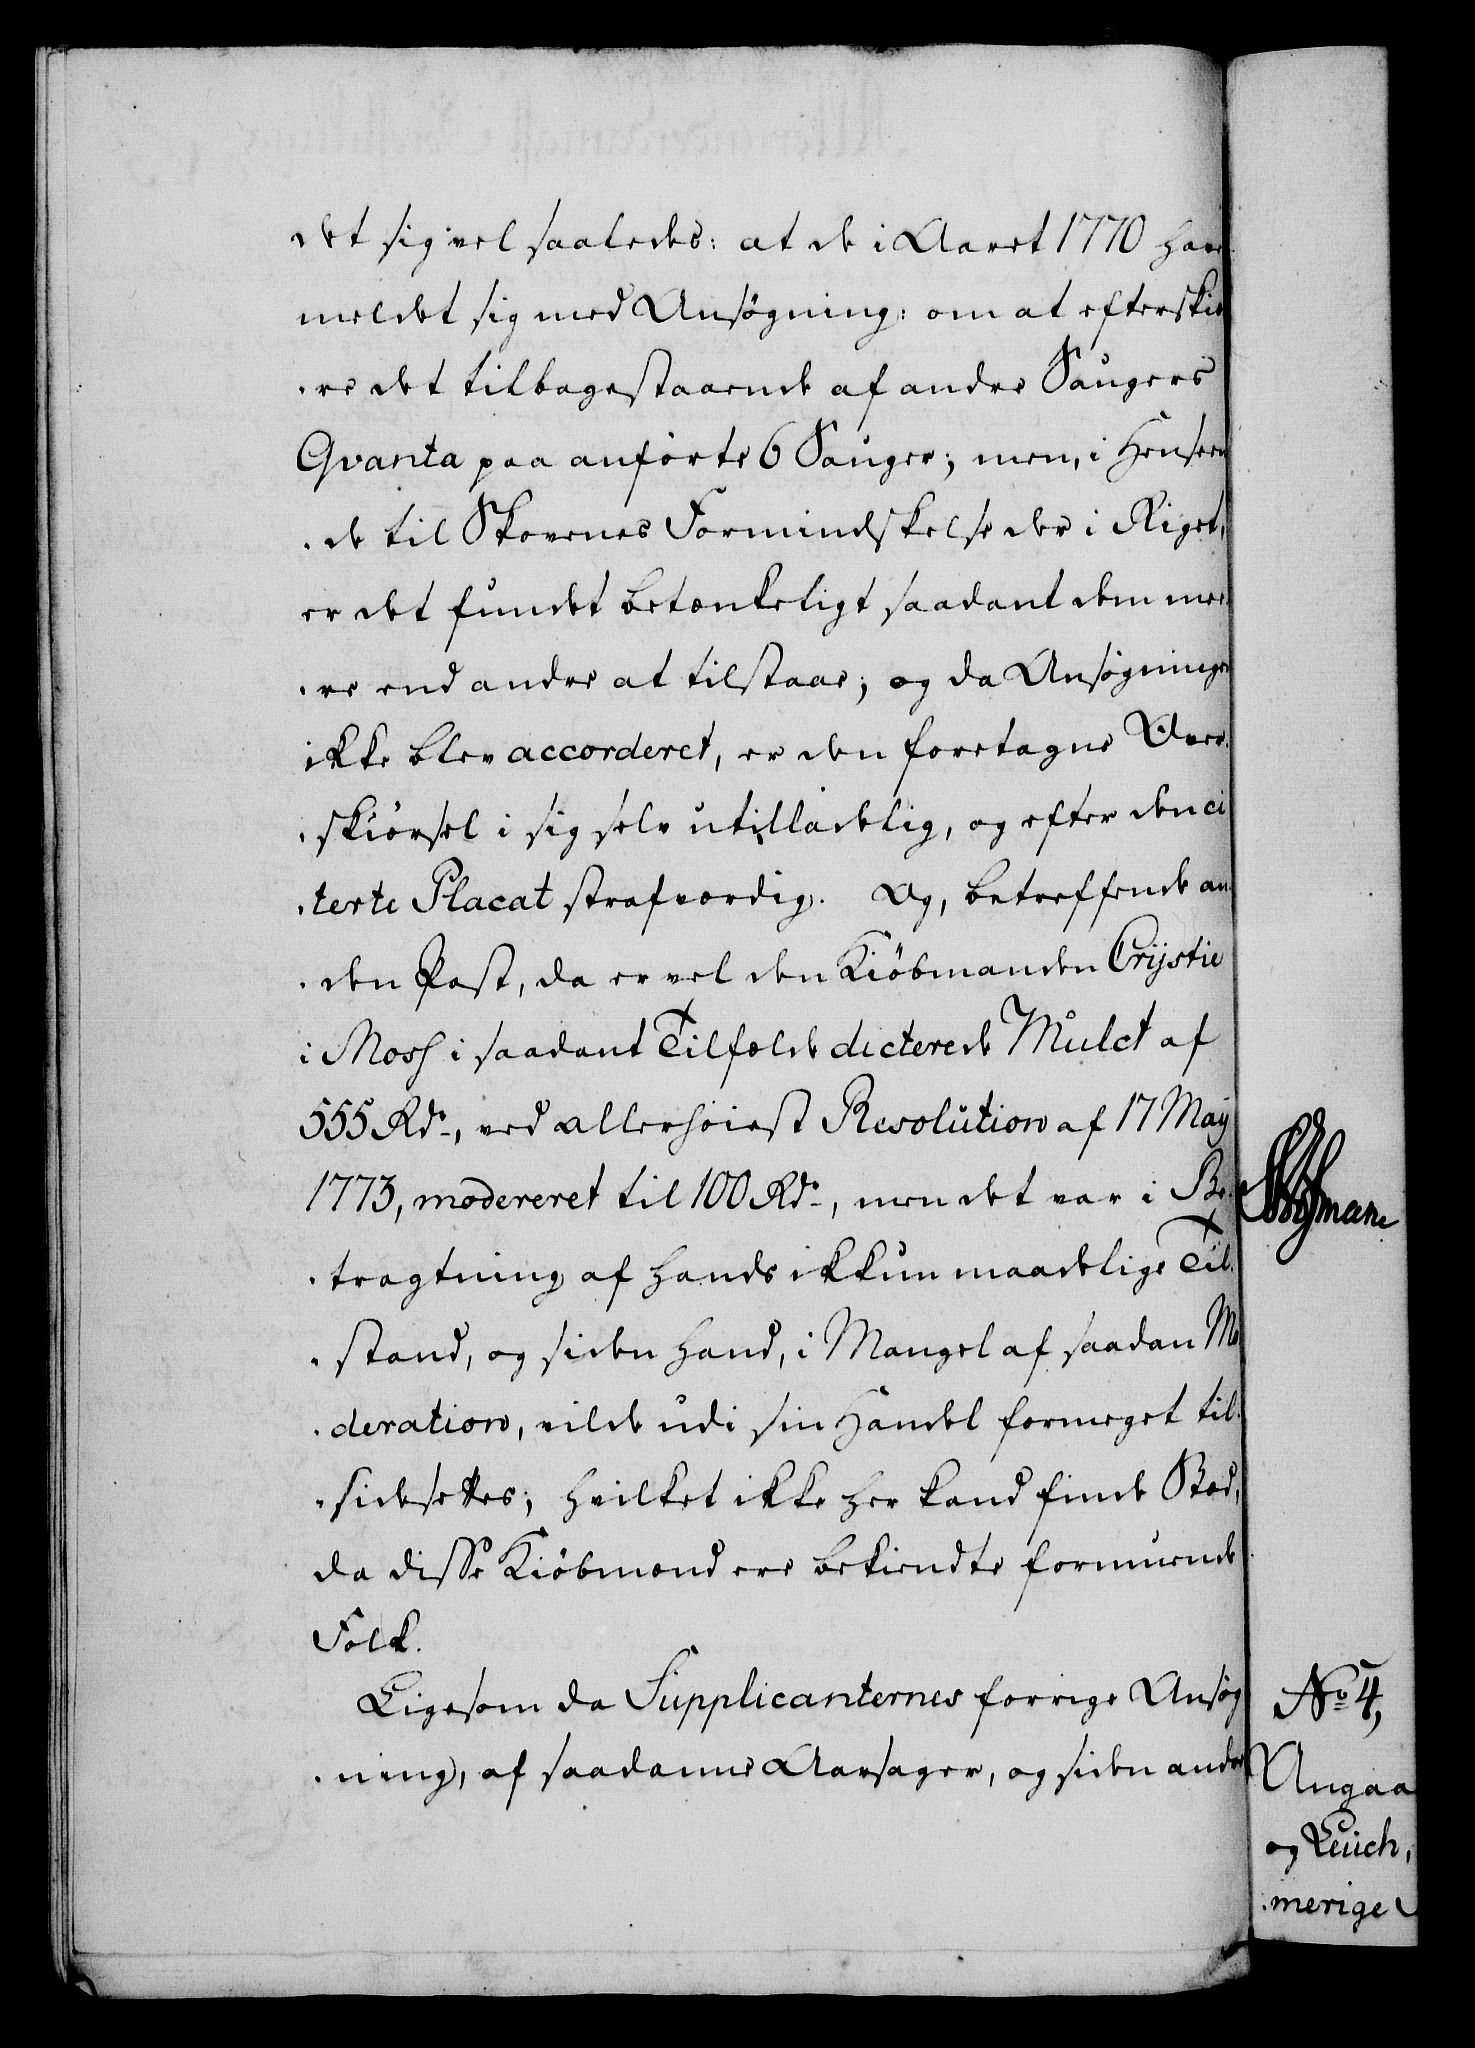 det sig vel saaledes: at de i Aaret 1770 have
meldet sig med Ansøgning: om at efterskiæ
re det tilbagestaaende af andre Saugers
Qvanta paa anførte 6 Sauger; men, i Henseen
de til Skovenes Formindskelse der i Riget,
er det fundet betænkeligt saadant dem mee
re end andre at tilstaae; og da Ansøgningen
ikke blev accorderet, er den foretagne Over
skiørsel i sig selv utilladelig, og efter den ci
terte Placat strafværdig. Og, betreffende an
den Post, da er vel den Kiøbmanden Crijstie
i Moss i saadant Tilfælde dicterede Mulct af
555 Rdr, ved allerhøiest Resolution af 17 May
1773, modereret til 100 Rdr, men det var i Be
tragtning af hands ikkun maadelige Til
stand, og siden hand, i Mangel af saadan Mo
deration, vilde udi sin Handel formeget til
sidesettes; hvilket ikke her kand finde Stæd,
da disse Kiøbmænd ere bekiendte formuende
Folk.
Ligesom da Supplicanternes forrige Ansøg
ning, af saadanne Aarsager, og siden andre
No 4,
Angaa
og Leuch,
merige